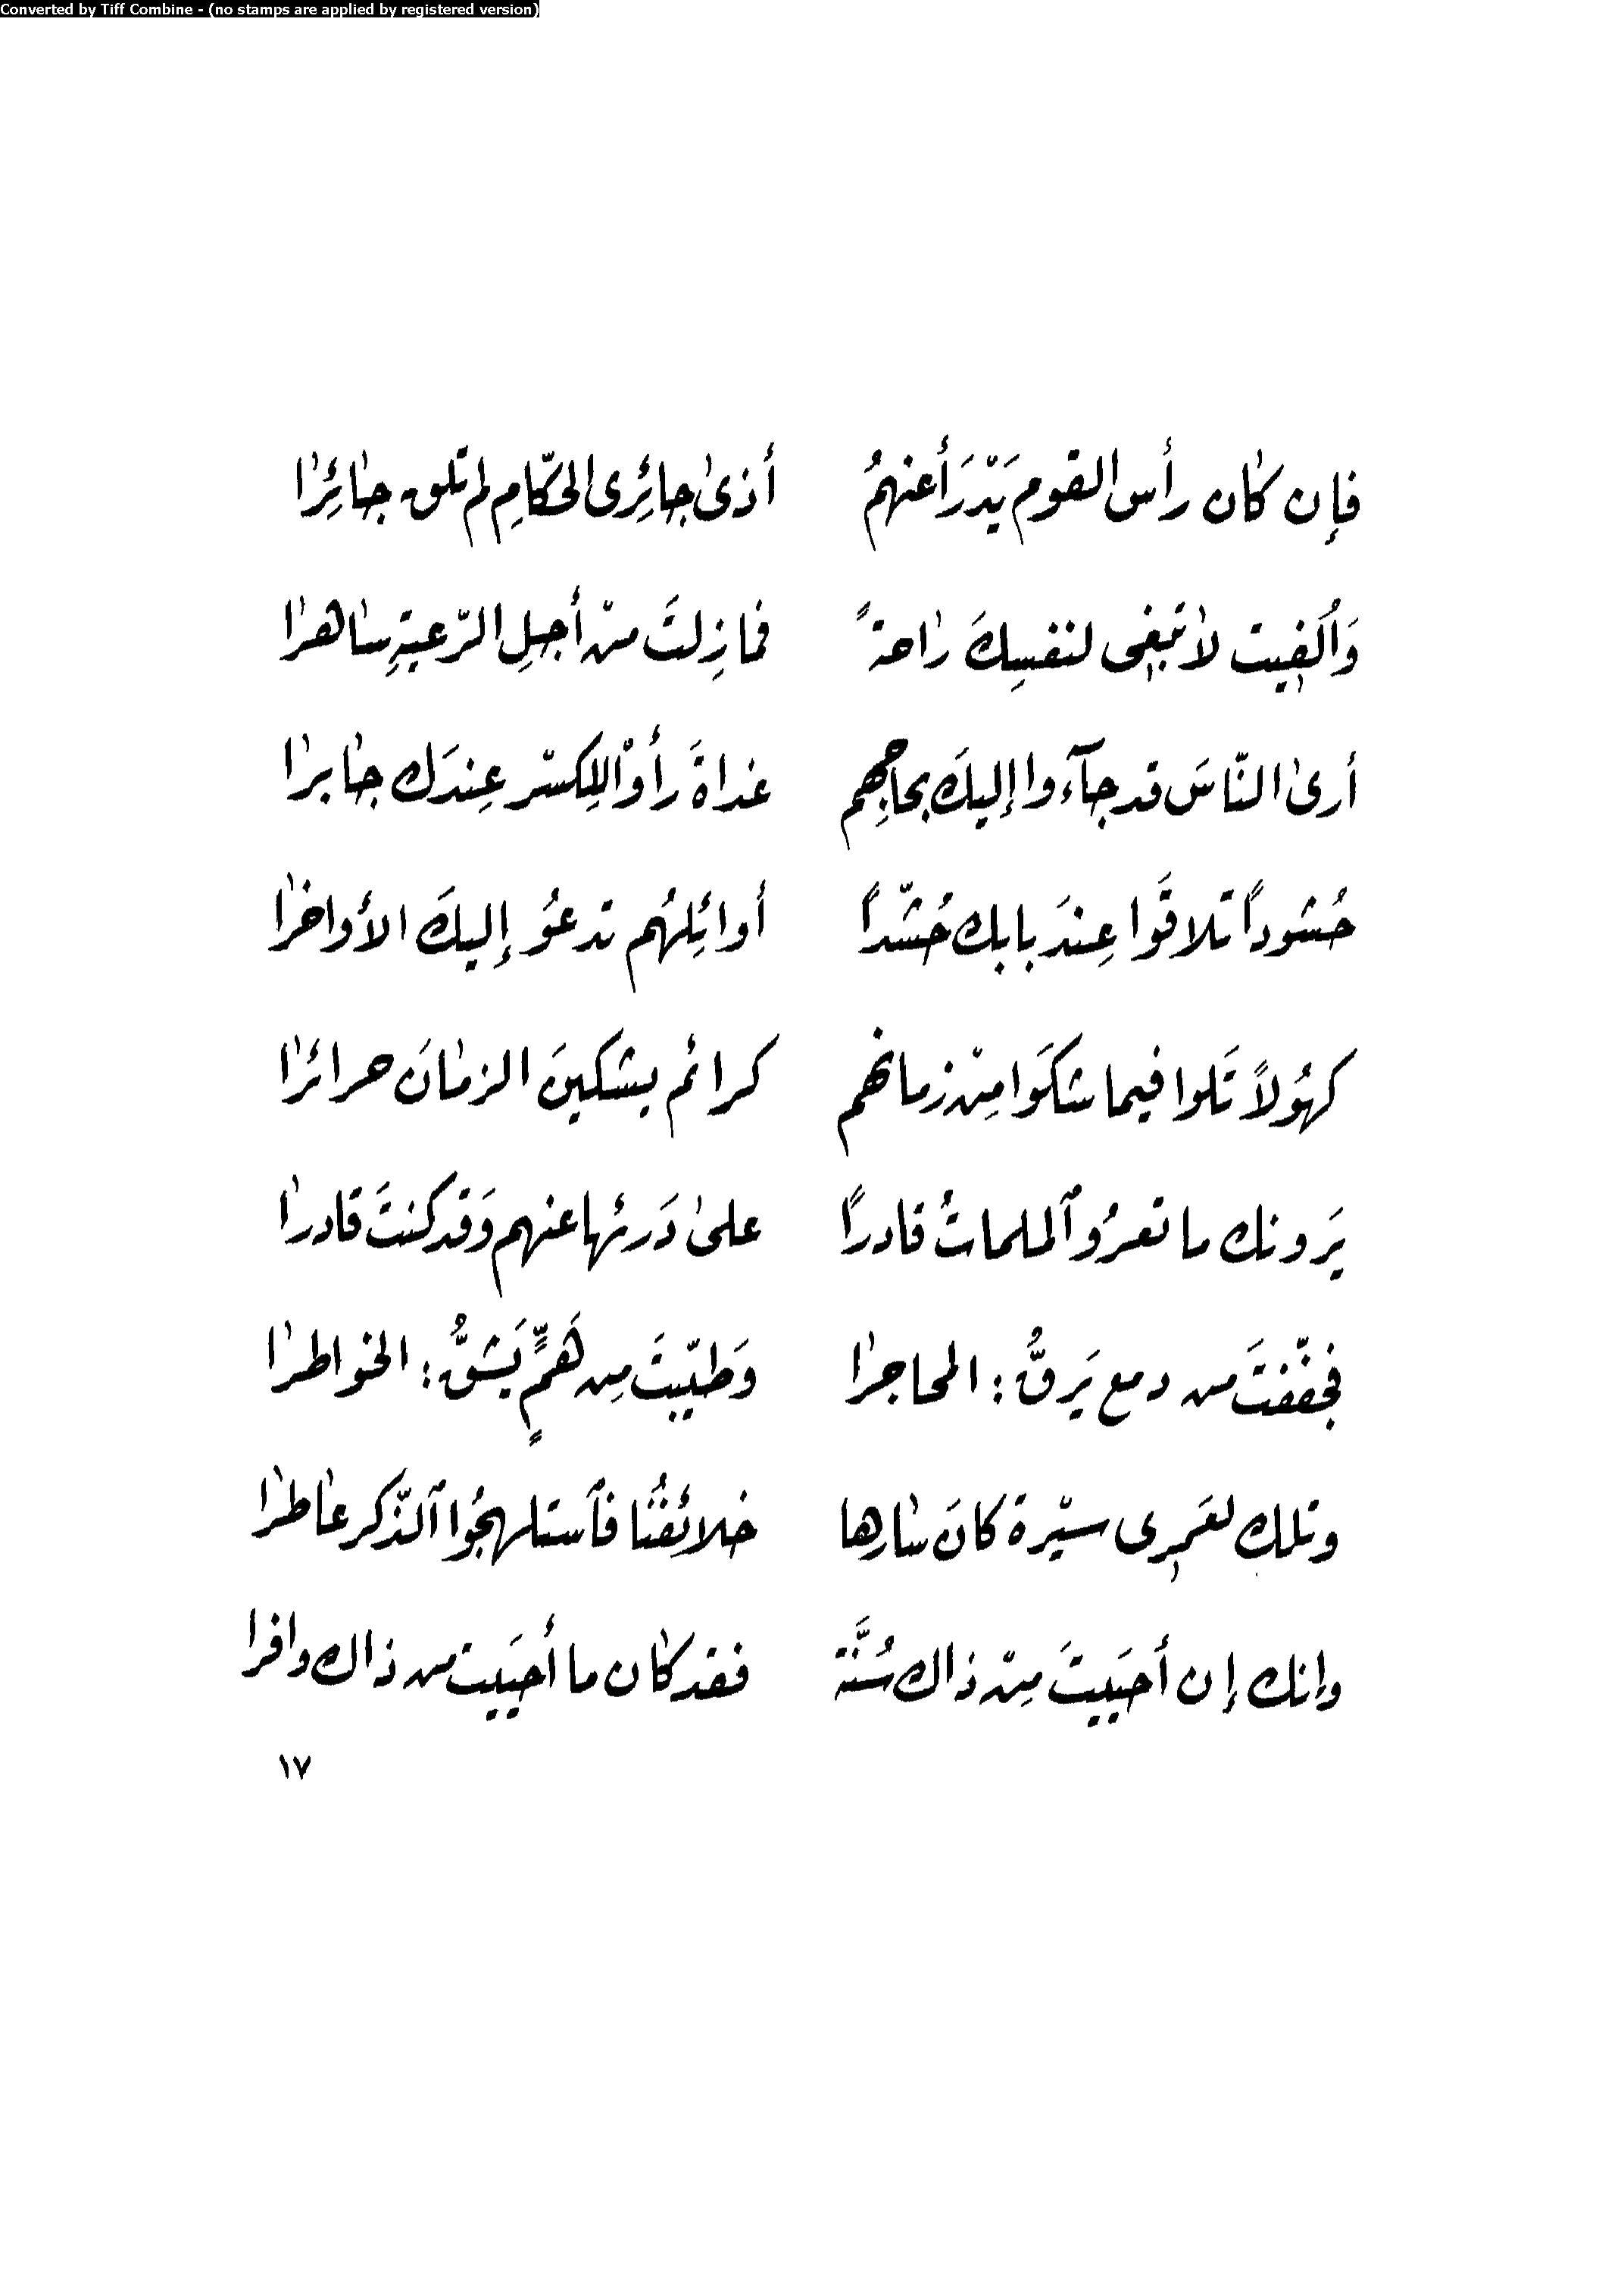 Converted by Tiff Combine - (no stamps are applied by registered version)
فإن كان رأس القوم يَدْرَأ عنهمُ أذىٰ جائِرى الحكّامِ لم تلق جائِرًا
وَأُلفِيت لا تبغِى لنفسِكَ راحةً فما زِلتَ منْ أجلِ الرّعيةِ ساهرا
أرىٰ النّاسَ قد جآءوا إليكَ بحاجِهِم غداةَ رأَوْا للِكسْر عِندَك جابرا
حُشوداً تلاقَوا عِندَ بابك حُشّداً أوائِلهُم تدعوُ إليكَ الأواخرا
كهُولاً تَلوا فيما شكَوا مِنْ زمانهم كرائم يشكينَ الزمانَ حرائرا
يَرونك ما تعرُو ٱلملماتُ قادراً علىٰ دَرئها عنهم وَقد كنتَ قادرا
فجفّفتَ من دمع يَرقُّ : المحاجرا وَطيّبتَ مِن هَمٍّ يَشقُّ : الخواطرا
وتلك لعَمرِى سيْرة كانَ سارها خلائِفُنا فٱستلهجُوا ٱلذّكر عاطرا
وإنك إن أحيَيتَ مِنْ ذاك سُنَّة فقد كان ما أحيَيت من ذاك وافرا
١٧